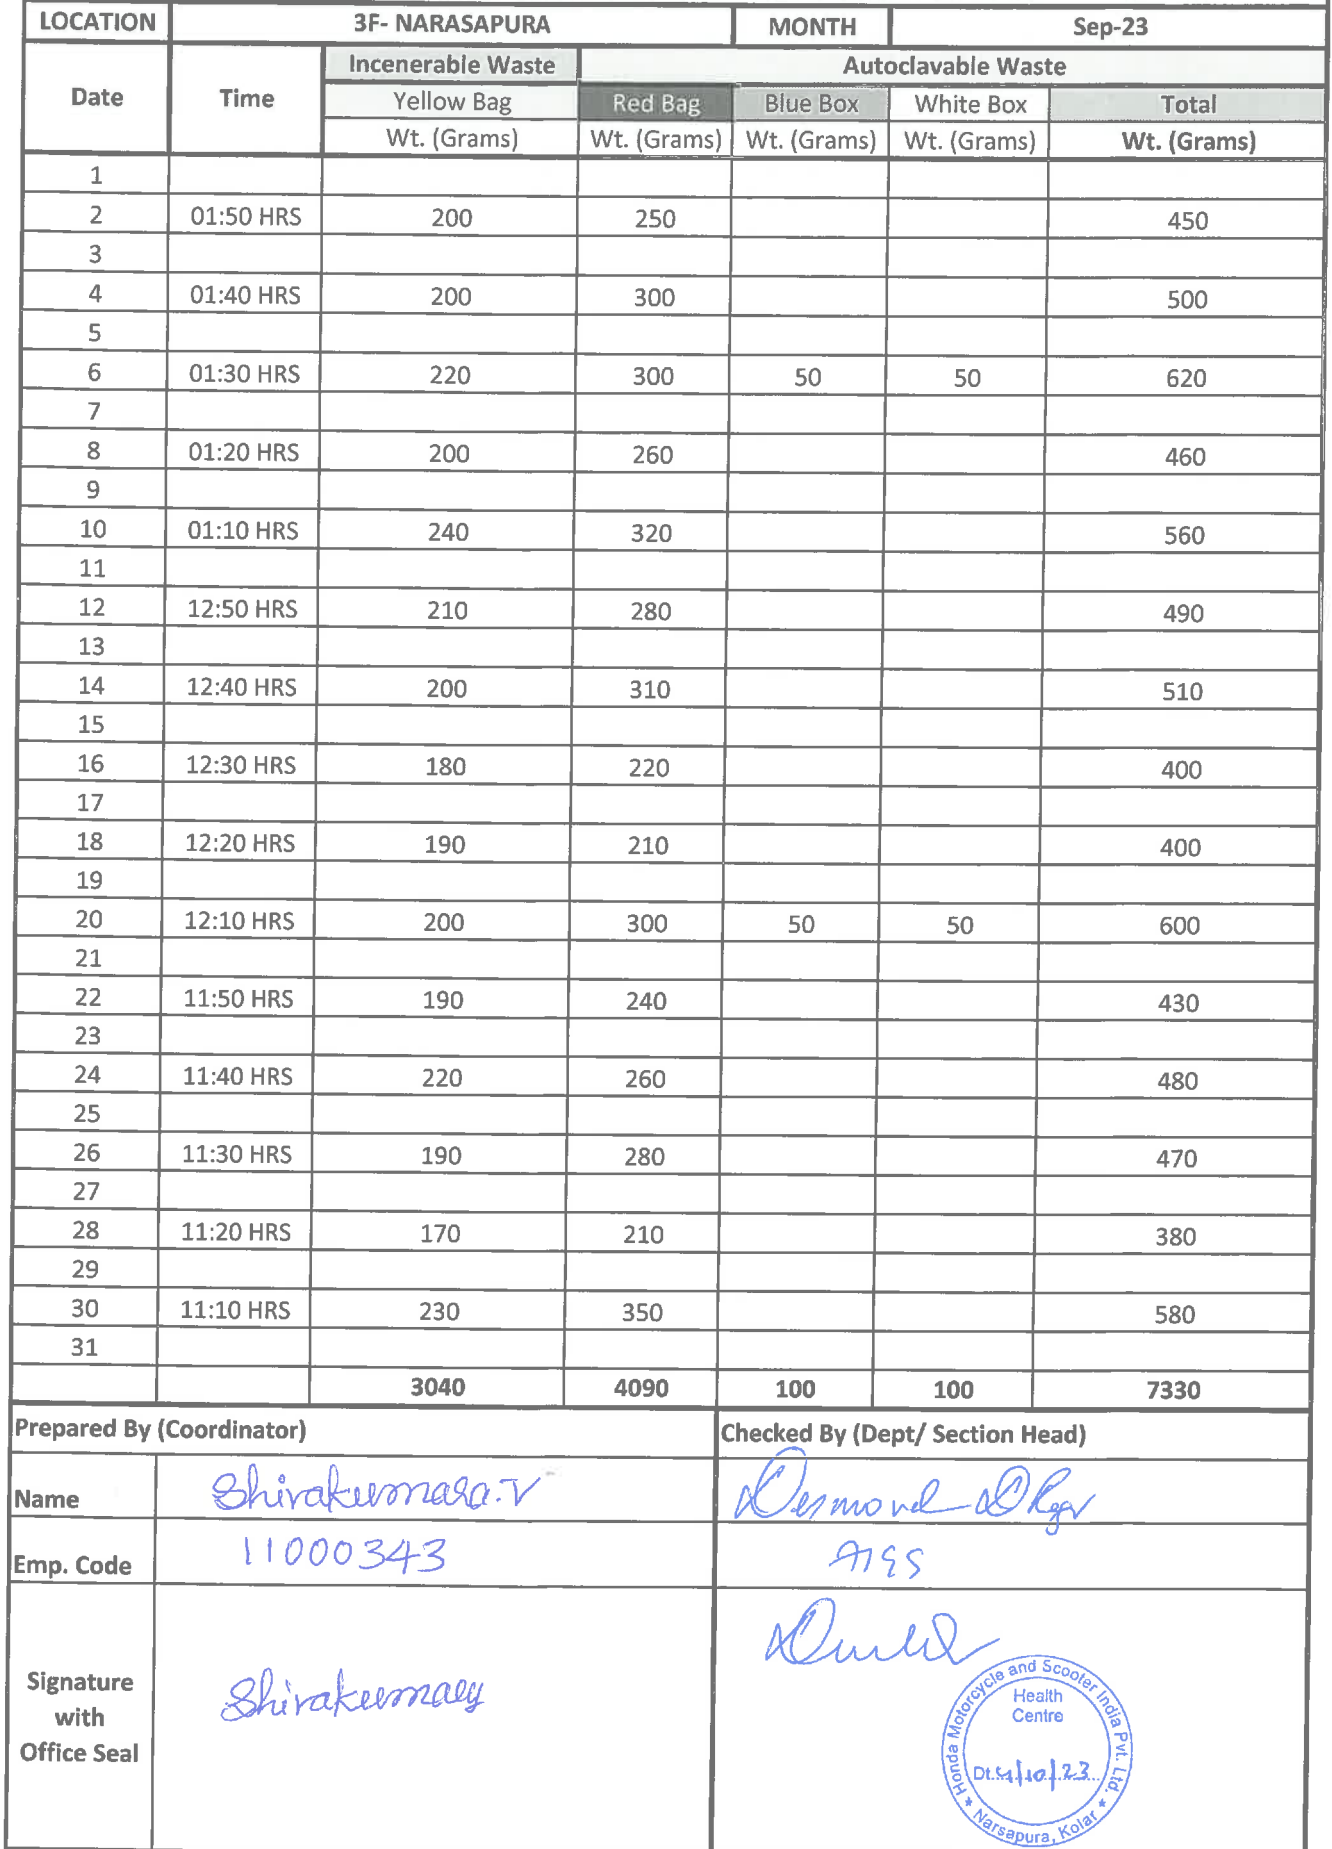 LOCATION 3F- NARASAPURA MONTH Sep-23
Date Time Incenerable Waste Autoclavable Waste
Yellow Bag Red Bag Blue Box White Box Total
Wt. (Grams) Wt. (Grams) Wt. (Grams) Wt. (Grams) Wt. (Grams)
1
2 01:50 HRS 200 250 450
3
4 01:40 HRS 200 300 500
5
6 01:30 HRS 220 300 50 50 620
7
8 01:20 HRS 200 260 460
9
10 01:10 HRS 240 320 560
11
12 12:50 HRS 210 280 490
13
14 12:40 HRS 200 310 510
15
16 12:30 HRS 180 220 400
17
18 12:20 HRS 190 210 400
19
20 12:10 HRS 200 300 50 50 600
21
22 11:50 HRS 190 240 430
23
24 11:40 HRS 220 260 480
25
26 11:30 HRS 190 280 470
27
28 11:20 HRS 170 210 380
29
30 11:10 HRS 230 350 580
31
3040 4090 100 100 7330
Prepared By (Coordinator) Checked By (Dept/ Section Head)
Name Shivakumara.V Desmond
Emp. Code 11000343
Signature
with
Office Seal
Honda Motorcycle and Scooter India Pvt. Ltd.
Health
Centre
Dt. 4/10/23
* Narsapura, Kolar *